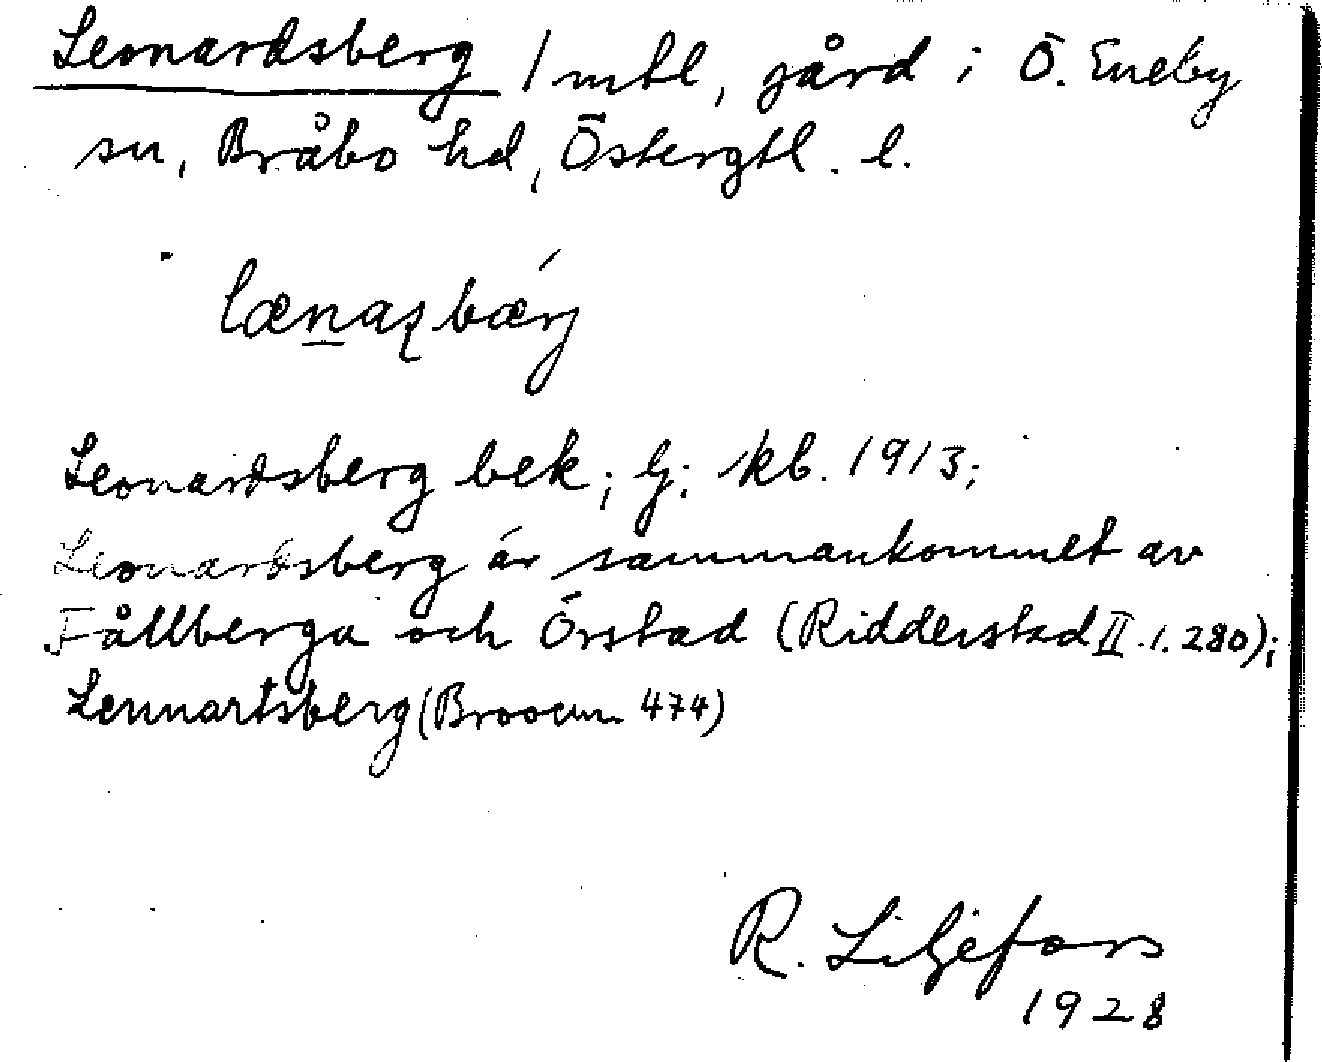 Leonardsberg 1 mtl, gård i Ö. Eneby
sn, Bråbo hd, Östergtl. l.
lænaʂbærj
Leonardsberg bek; lj; kb. 1913;
Leonardsberg är sammankommet av
Fållberga och Örstad (Ridderstad II.1.280);
Lennartsberg (Broocm. 474)
R. Liljefors
1928